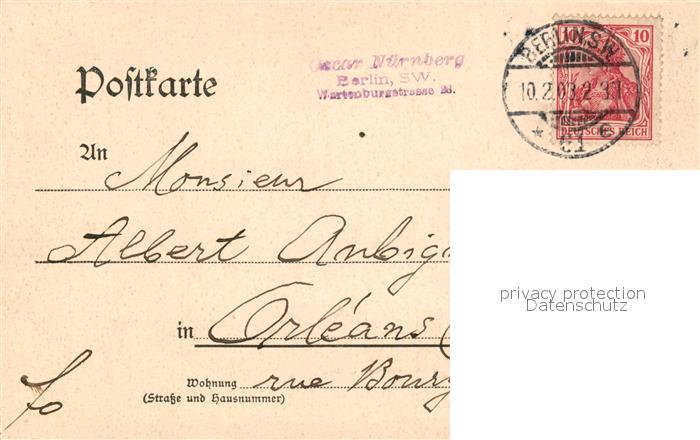 Postkarte
Oscar Nürnberg
Berlin, SW.
Wartenburgstrasse 26.
BERLIN.S.W
10.2.03.2-3N
* 61 c
10 10
DEUTSCHES REICH
An Monsieur
Albert Aubig
in Orléans
Wohnung rue Bourg
(Straße und Hausnummer)
privacy protection
Datenschutz